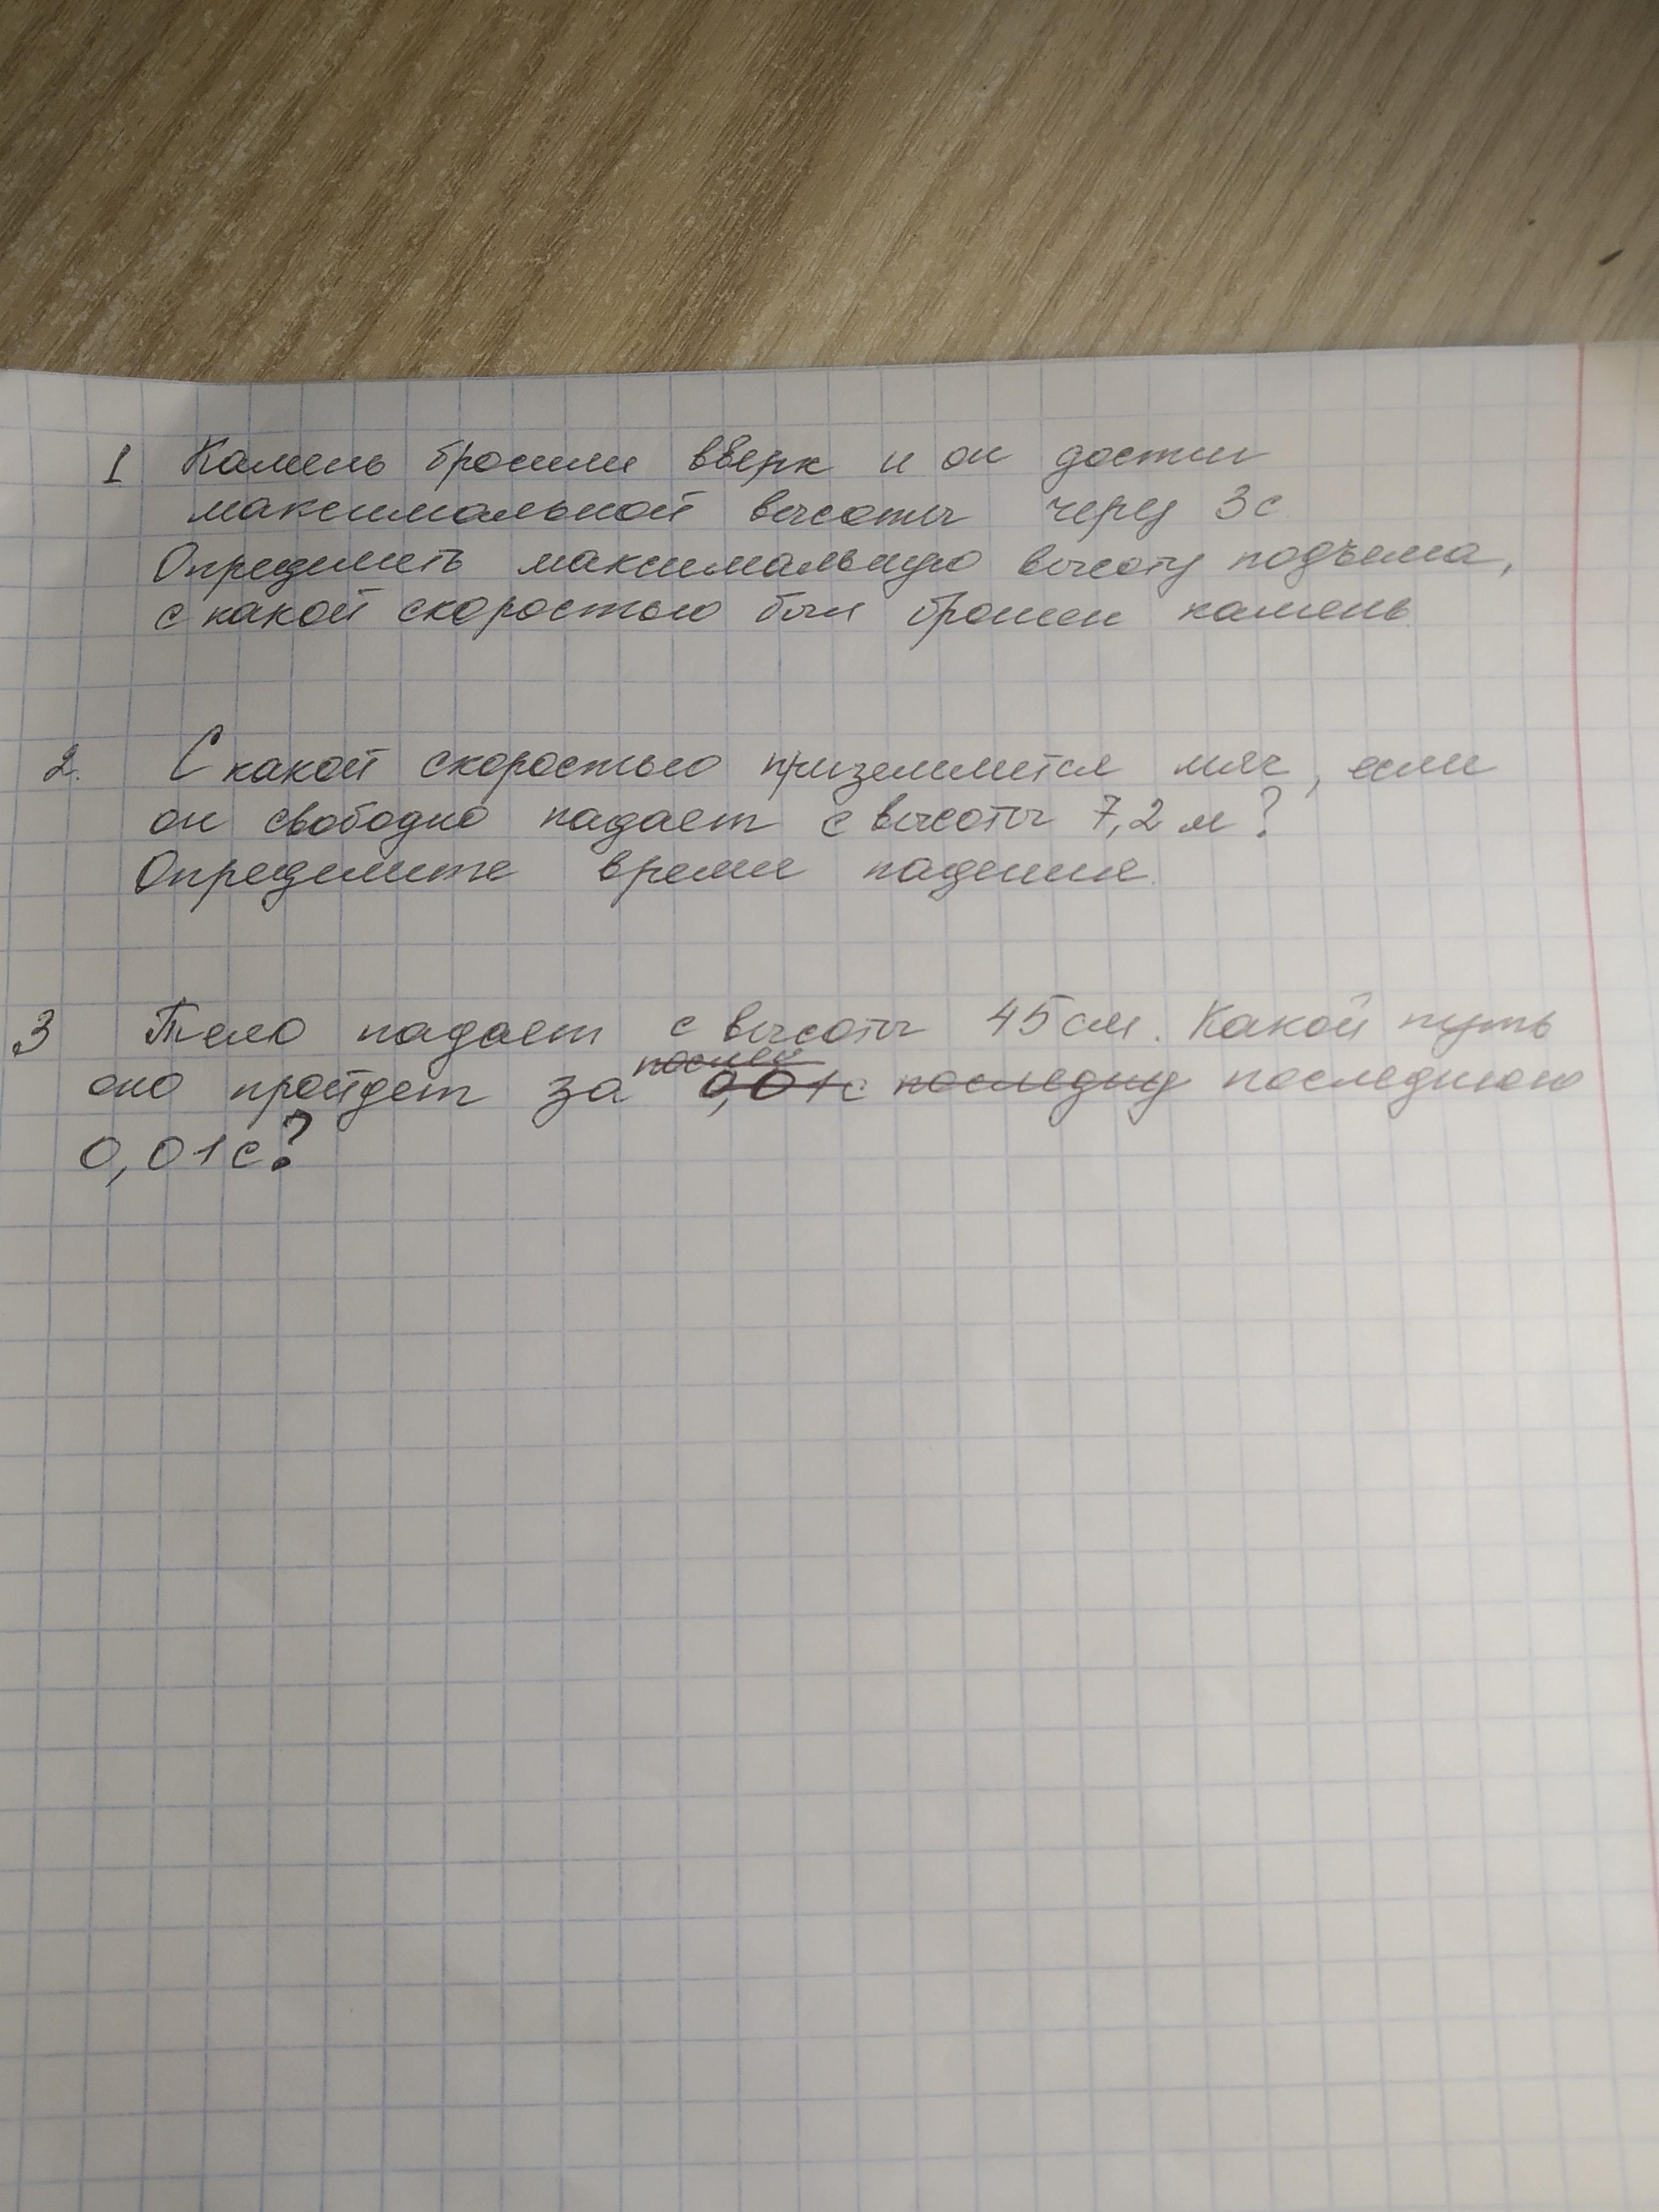 1 Камень бросили вверх и он достиг
максимальной высоты через 3с.
Определить максимальную высоту подъема,
с какой скоростью был брошен камень.
2. С какой скоростью приземлится мяч, если
он свободно падает с высоты 7,2 м?
Определите время падения.
3 Тело падает с высоты 45см. Какой путь
оно пройдет за 0,01с последнюю последнюю
0,01с?